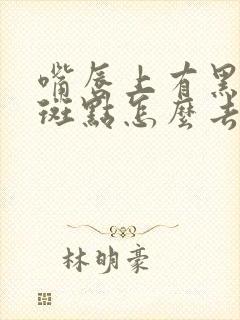 嘴唇上有黑
斑點怎麼去
林明豪